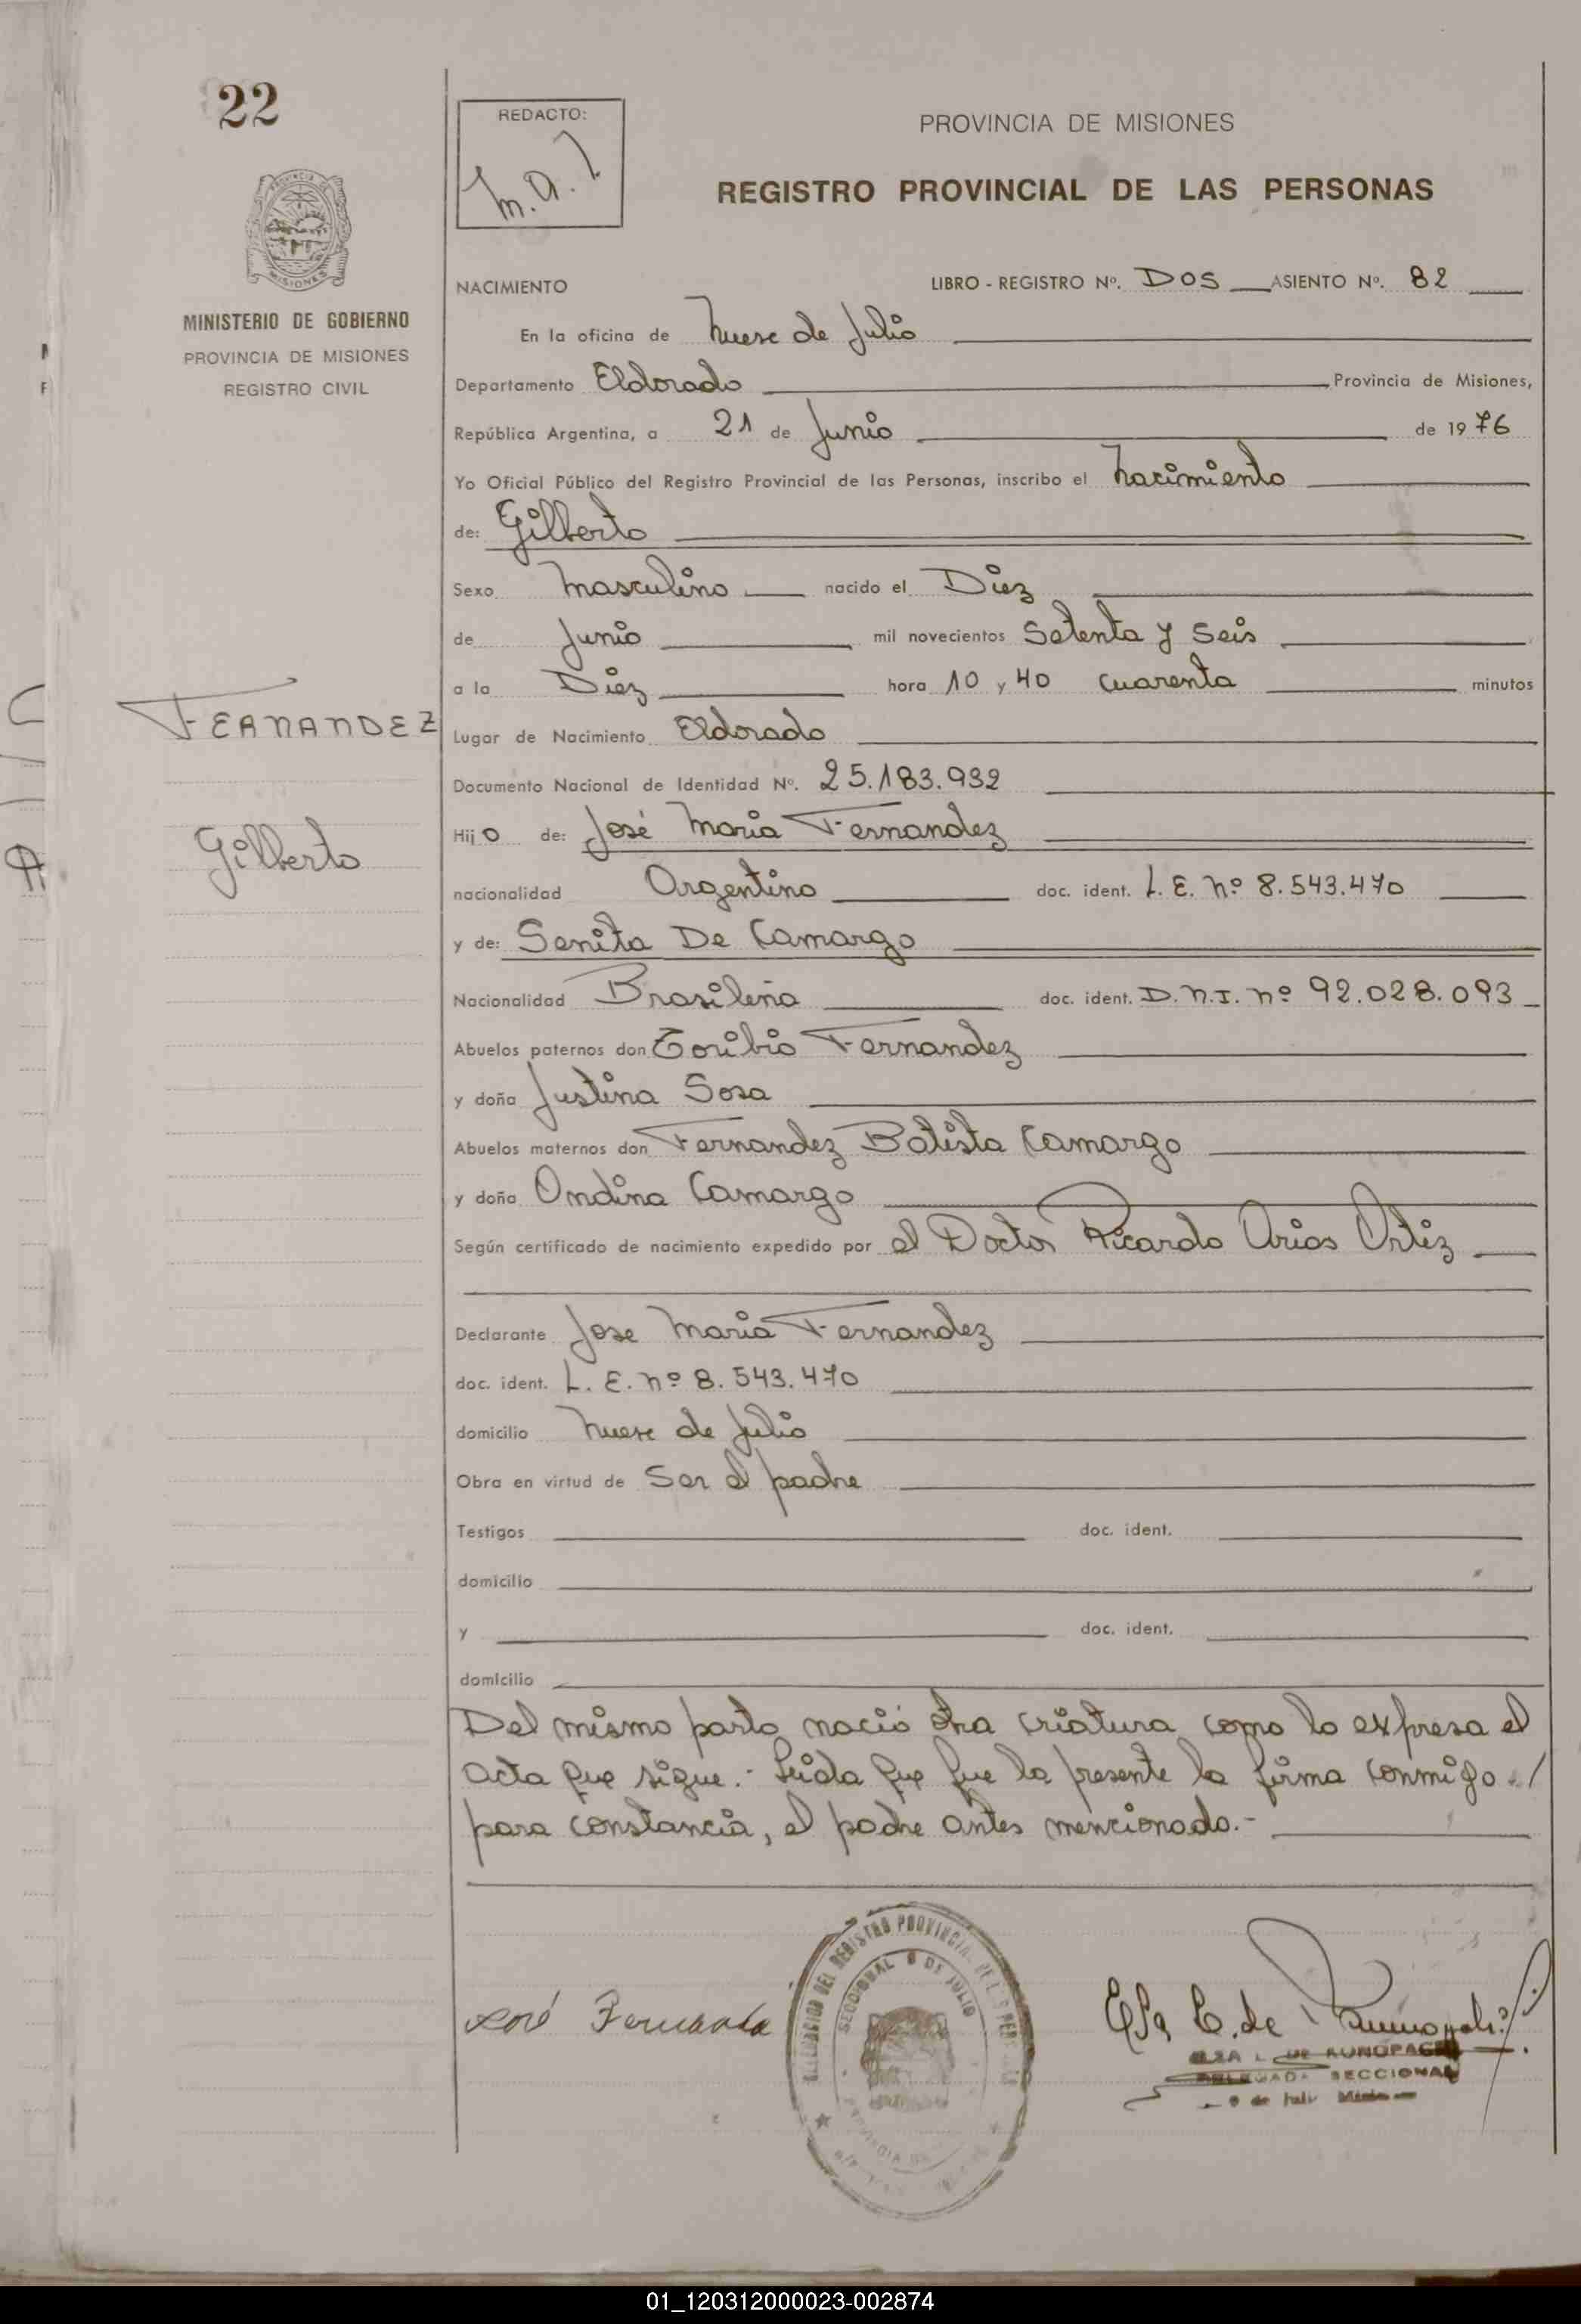 22
REDACTO:
m.a.
PROVINCIA DE MISIONES
REGISTRO PROVINCIAL DE LAS PERSONAS
MINISTERIO DE GOBIERNO
PROVINCIA DE MISIONES
REGISTRO CIVIL
NACIMIENTO LIBRO - REGISTRO Nº. DOS ASIENTO Nº. 82
En la oficina de Nueve de Julio
Departamento Eldorado Provincia de Misiones,
República Argentina, a 21 de Junio de 1976
Yo Oficial Público del Registro Provincial de las Personas, inscribo el Nacimiento
de: Gilberto
Sexo Masculino nacido el Diez
de Junio mil novecientos Setenta y Seis
a la Diez hora 10 y 40 cuarenta minutos
FERNANDEZ
Gilberto
Lugar de Nacimiento Eldorado
Documento Nacional de Identidad Nº. 25.183.932
Hijo de: José Maria Fernandez
nacionalidad Argentino doc. ident. L. E. nº 8.543.470
y de: Senita De Camargo
Nacionalidad Brasileña doc. ident. D.N.I. nº 92.028.093
Abuelos paternos don Toribio Fernandez
y doña Justina Sosa
Abuelos maternos don Fernandez Batista Camargo
y doña Ondina Camargo
Según certificado de nacimiento expedido por el Doctor Ricardo Arias Ortiz
Declarante Jose Maria Fernandez
doc. ident. L. E. nº 8.543.470
domicilio Nueve de Julio
Obra en virtud de Ser el padre
Testigos doc. ident.
domicilio
y doc. ident.
domicilio
Del mismo parto nació otra criatura como lo expresa el
acta que sigue.- Leida que fue la presente la firma conmigo./
para constancia, el padre antes mencionado.-
José Fernande
SECCIONAL 9 DE JULIO
DELEGADA SECCIONAL
01_120312000023-002874